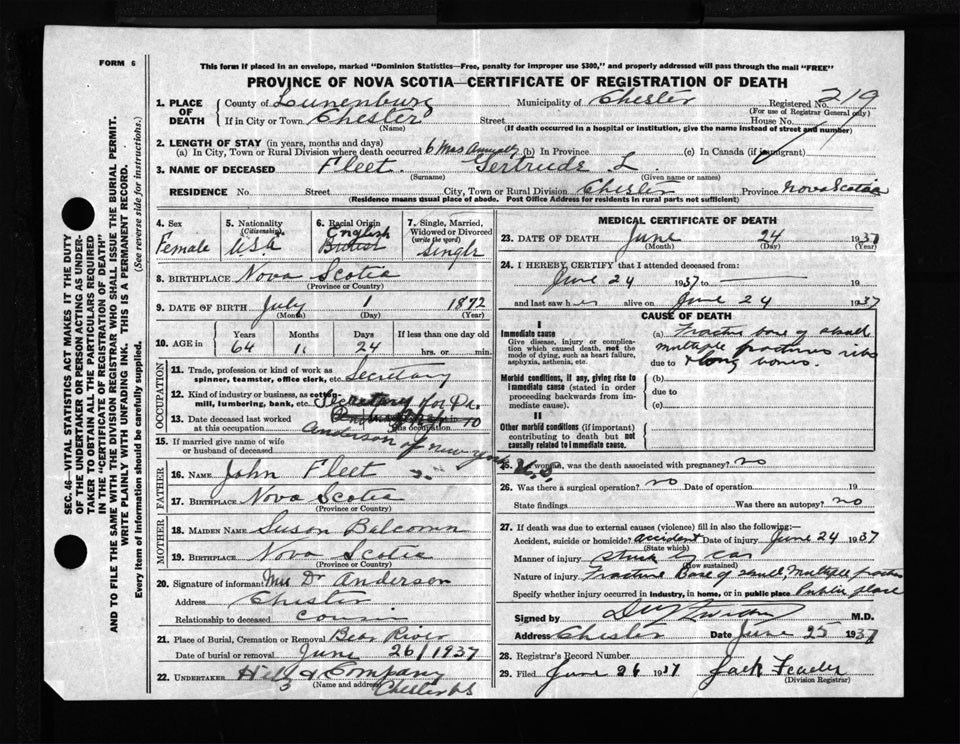 FORM 6
This form if placed in an envelope, marked "Dominion Statistics—Free, penalty for improper use $300," and properly addressed will pass through the mail "FREE"
PROVINCE OF NOVA SCOTIA—CERTIFICATE OF REGISTRATION OF DEATH
SEC. 46—VITAL STATISTICS ACT MAKES IT THE DUTY
OF THE UNDERTAKER OR PERSON ACTING AS UNDER-
TAKER TO OBTAIN ALL THE PARTICULARS REQUIRED
IN THE "CERTIFICATE OF REGISTRATION OF DEATH"
AND TO FILE THE SAME WITH THE DIVISION REGISTRAR WHO SHALL ISSUE THE BURIAL PERMIT.
WRITE PLAINLY WITH UNFADING INK. THIS IS A PERMANENT RECORD.
Every item of information should be carefully supplied. (See reverse side for instructions.)
1. PLACE OF DEATH { County of Lunenburg Municipality of Chester Registered No. 219
(For use of Registrar General only)
If in City or Town Chester Street House No.
(Name) (If death occurred in a hospital or institution, give the name instead of street and number)
2. LENGTH OF STAY (in years, months and days)
(a) In City, Town or Rural Division where death occurred 6 Mos Annually (b) In Province (c) In Canada (if immigrant)
3. NAME OF DECEASED Fleet Gertrude L.
(Surname) (Given name or names)
RESIDENCE No. Street City, Town or Rural Division Chester Province Nova Scotia
(Residence means usual place of abode. Post Office Address for residents in rural parts not sufficient)
4. Sex Female
5. Nationality (Citizenship) U.S.A.
6. Racial Origin English
7. Single, Married, Widowed or Divorced (write the word) Single
8. BIRTHPLACE Nova Scotia
(Province or Country)
9. DATE OF BIRTH July 1 1872
(Month) (Day) (Year)
10. AGE in Years 64 Months 11 Days 24 If less than one day old hrs. or min.
OCCUPATION
11. Trade, profession or kind of work as
spinner, teamster, office clerk, etc. Secretary
12. Kind of industry or business, as cotton-
mill, lumbering, bank, etc. Secretary for Dr.
Anderson of New York U.S.
13. Date deceased last worked
at this occupation
15. If married give name of wife
or husband of deceased
FATHER
16. NAME John Fleet
17. BIRTHPLACE Nova Scotia
(Province or Country)
MOTHER
18. MAIDEN NAME Susan Balcomn
19. BIRTHPLACE Nova Scotia
(Province or Country)
20. Signature of informant Mrs Dr Anderson
Address Chester
Relationship to deceased cousin
21. Place of Burial, Cremation or Removal Bear River
Date of burial or removal June 26/1937
22. UNDERTAKER & Company
(Name and address) Chester NS
MEDICAL CERTIFICATE OF DEATH
23. DATE OF DEATH June 24 1937
(Month) (Day) (Year)
24. I HEREBY CERTIFY that I attended deceased from:
June 24 1937 to 19
and last saw her alive on June 24 1937
CAUSE OF DEATH
I
Immediate cause
Give disease, injury or complica-
tion which caused death, not the
mode of dying, such as heart failure,
asphyxia, asthenia, etc.
(a) Fracture base of skull
multiple fractures ribs
due to & long bones.
Morbid conditions, if any, giving rise to
immediate cause (stated in order
proceeding backwards from im-
mediate cause).
(b)
due to
(c)
II
Other morbid conditions (if important)
contributing to death but not
causally related to immediate cause.
25. If woman, was the death associated with pregnancy? no
26. Was there a surgical operation? no Date of operation 19
State findings Was there an autopsy? no
27. If death was due to external causes (violence) fill in also the following:—
Accident, suicide or homicide? accident Date of injury June 24 1937
(State which)
Manner of injury struck by car
(How sustained)
Nature of injury Fracture Base of skull, Multiple fractures
Specify whether injury occurred in industry, in home, or in public place Public place
Signed by M.D.
Address Chester Date June 25 1937
28. Registrar's Record Number
29. Filed June 26 1937 Jack
(Division Registrar)